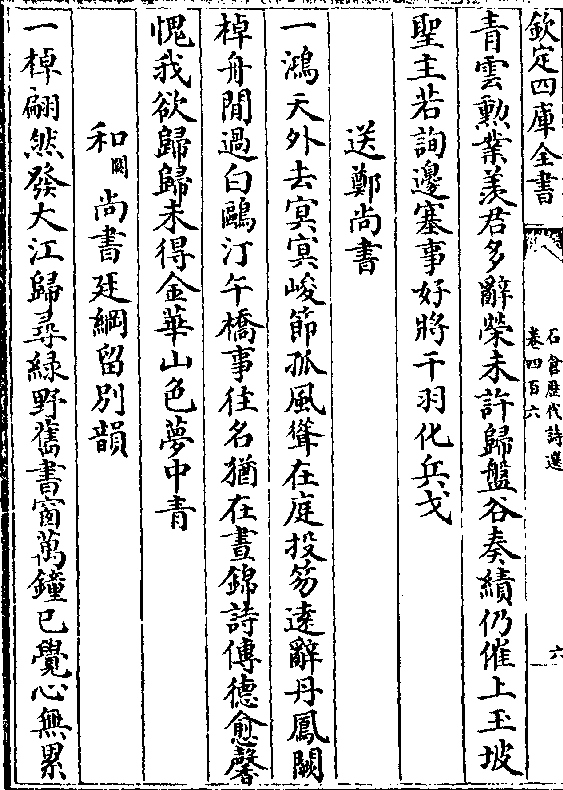 欽定四庫全書
石倉歷代詩選
卷四百六
六
青雲勲業羨君多辭榮未許歸盤谷奏績仍催上玉坡
聖主若詢邊塞事好將干羽化兵戈
送鄭尚書
一鴻天外去㝠㝠峻節孤風聳在庭投笏逺辭丹鳳闕
棹舟閒過白鷗汀午橋事往名猶在晝錦詩傳德愈馨
愧我欲歸歸未得金華山色夢中青
和闕尚書廷綱留别韻
一棹翩然發大江歸尋緑野舊書窗萬鐘已覺心無累